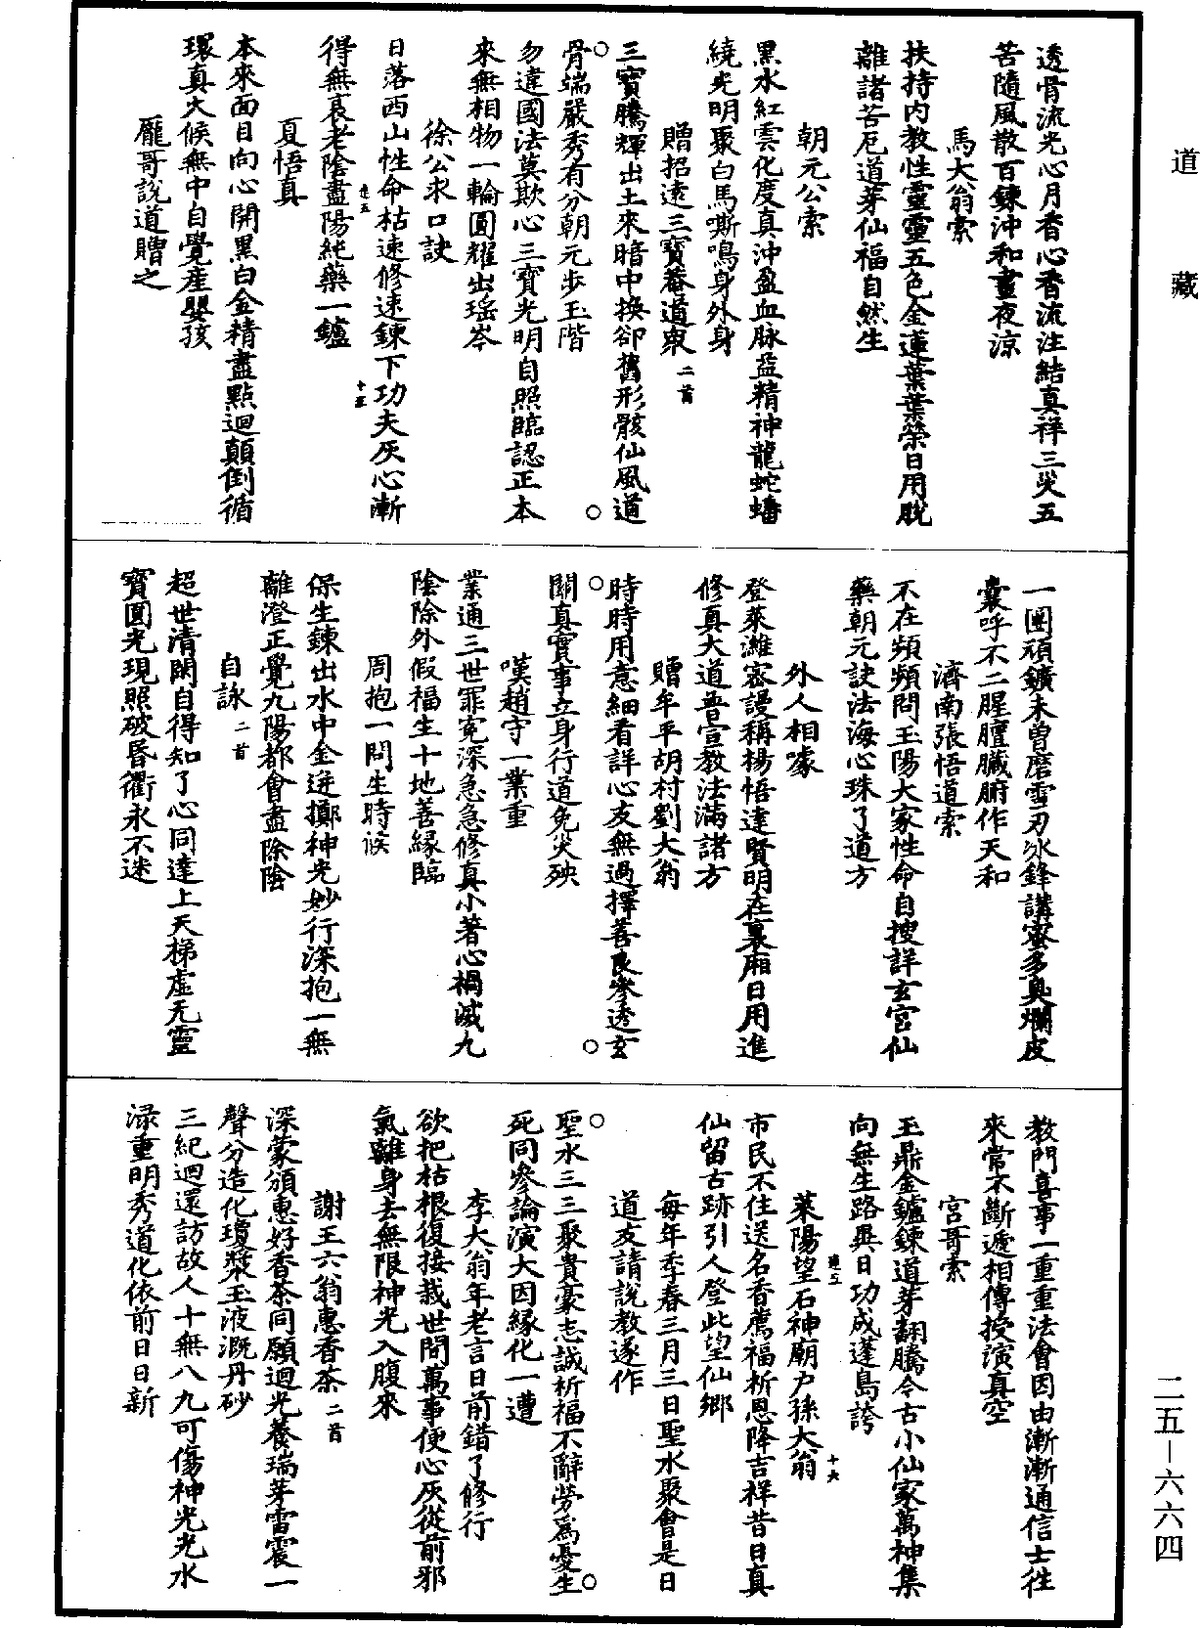 道藏
透骨流光心月香心香流注結真祥三災五
苦隨風散百鍊沖和晝夜涼
馬大翁索
扶持內教性靈靈五色金蓮葉葉榮日用脫
離諸苦厄道芽仙福自然生
朝元公索
黑水紅雲化度真沖盈血脉益精神龍蛇蟠
繞光明聚白馬嘶鳴身外身
贈招遠三寶菴道衆二首
三寶騰輝出土來暗中換卻舊形骸仙風道
骨端嚴秀有分朝元步玉階
勿違國法莫欺心三寶光明自照臨認正本
來無相物一輪圓耀出瑤岑
徐公求口訣
日落西山性命枯速修速鍊下功夫灰心漸
得無衰老陰盡陽純藥一鑪
十五
夏悟真
本來面目向心開黑白金精盡點迴顛倒循
環真火候無中自覺産嬰孩
龐哥說道贈之
一團頑鑛未曾磨雪刃冰鋒講蜜多臭爛皮
囊呼不二腥膻臟腑作天和
濟南張悟道索
不在頻頻問玉陽大家性命自搜詳玄宮仙
藥朝元訣法海心珠了道方
外人相噱
登萊濰密謾稱楊悟達賢明在裏廂日用進
修真大道普宣教法滿諸方
贈牟平胡村劉大翁
時時用意細看詳心友無過擇善良參透玄
關真實事立身行道免災殃
嘆趙守一業重
業通三世罪寃深急急修真小著心禍滅九
陰除外假福生十地善緣臨
周抱一問生時候
保生鍊出水中金迸擲神光妙行深抱一無
離澄正覺九陽都會盡除陰
自詠二首
超世清閑自得知了心同達上天梯虛无靈
寶圓光現照破昏衢永不迷
教門喜事一重重法會因由漸漸通信士往
來常不斷遞相傳授演真空
宮哥索
玉鼎金鑪鍊道芽翻騰今古小仙家萬神集
向無生路異日功成蓬島誇
萊陽望石神廟户孫大翁
十六
市民不住送名香薦福祈恩降吉祥昔日真
仙留古跡引人登此望仙鄉
每年季春三月三日聖水聚會是日
道友請說教遂作
聖水三三聚貴豪志誠祈福不辭勞爲憂生
死同參論演大因緣化一遭
李大翁年老言日前錯了修行
欲把枯根復接栽世間萬事便心灰從前邪
氣離身去無限神光入腹來
謝王六翁惠香茶二首
深蒙頒惠好香茶同願迴光養瑞芽雷震一
聲分造化瓊漿玉液溉丹砂
三紀迴還訪故人十無八九可傷神光光水
淥重明秀道化依前日日新
二五－六六四